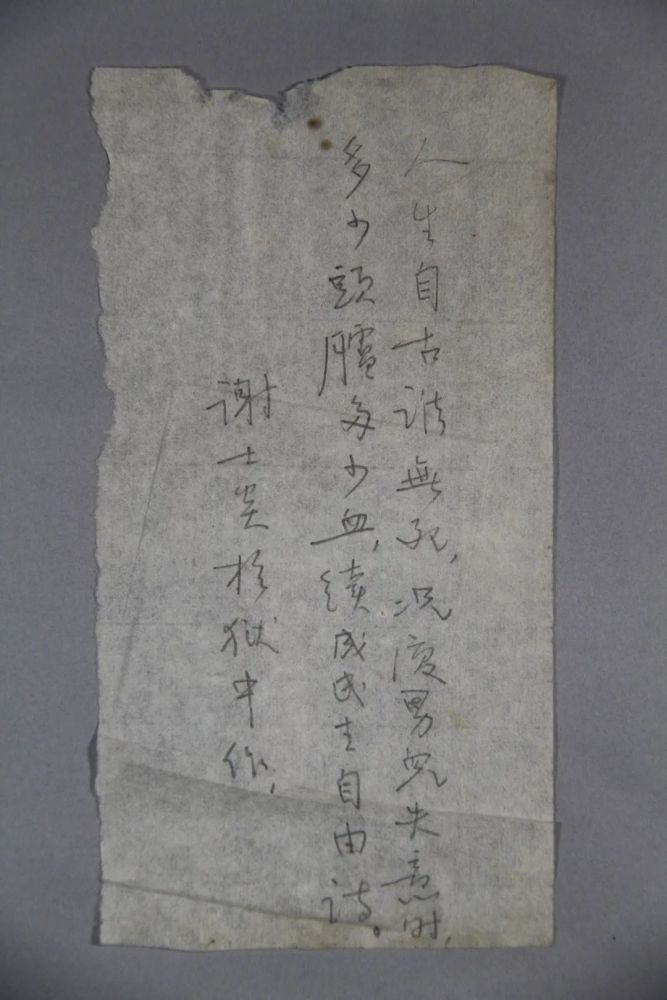 人生自古谁無死,况復男兒失意时,
多少頭臚多少血,續成民主自由诗。
谢士炎於獄中作,